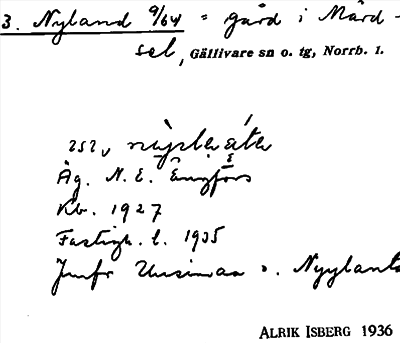 3. Nyland 9/64 = gård i Mård-
sel, Gällivare sn o. tg, Norrb. l.
Äg. N. E. Engfors
Kb. 1927
Fastigh. l. 1935
Jmfr Uusimaa o. Nyylanti
ALRIK ISBERG 1936